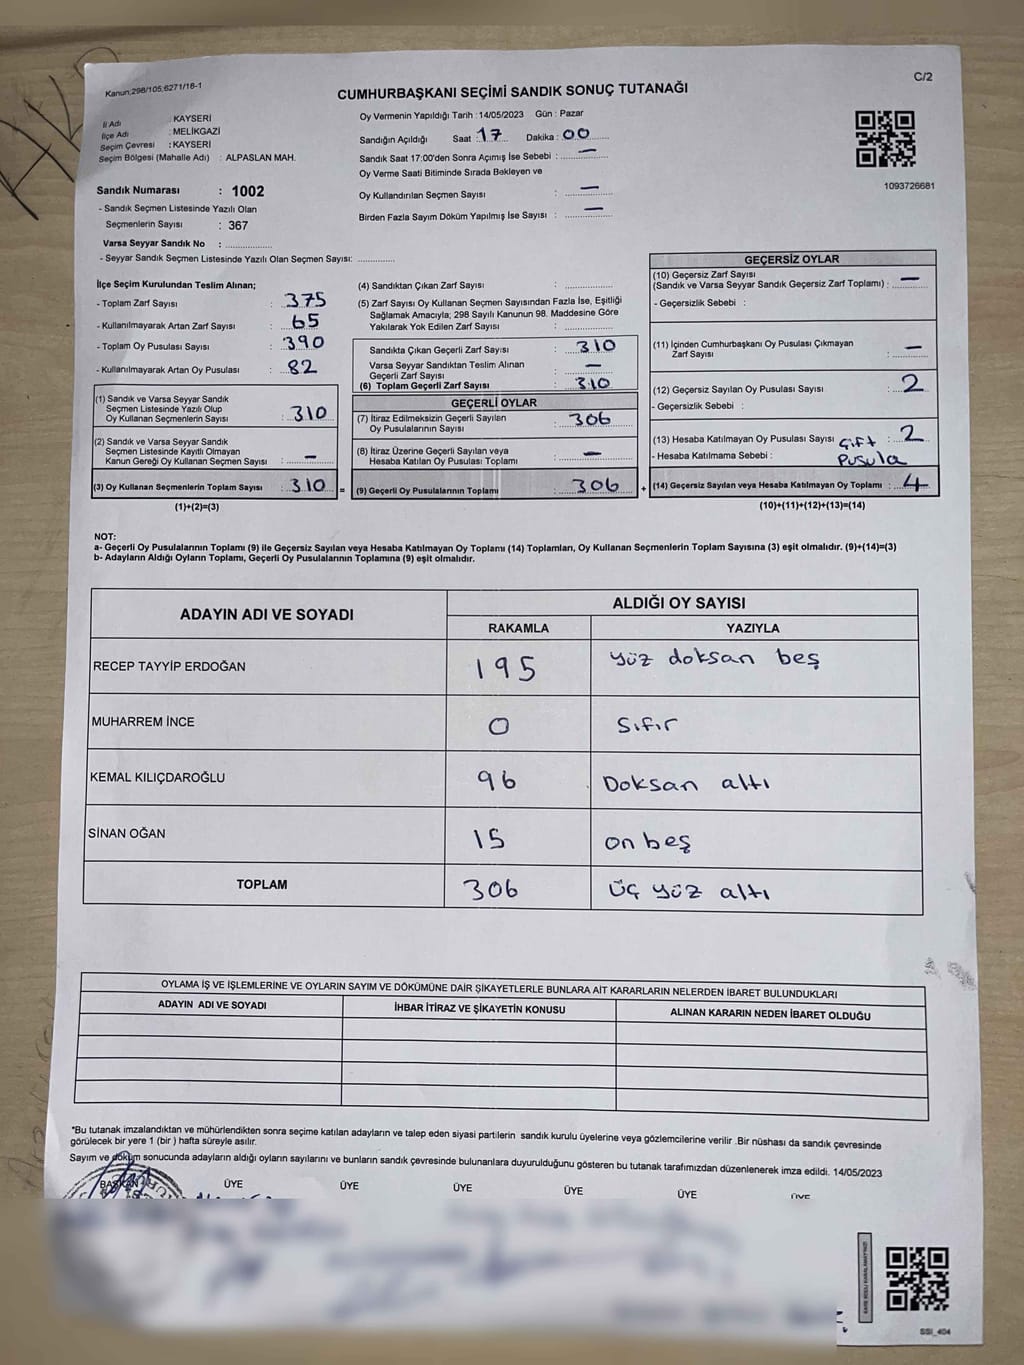 Kanun;298/105;6271/16-1
C/2
CUMHURBAŞKANI SEÇİMİ SANDIK SONUÇ TUTANAĞI
İl Adı : KAYSERİ
İlçe Adı : MELİKGAZİ
Seçim Çevresi : KAYSERİ
Seçim Bölgesi (Mahalle Adı) : ALPASLAN MAH.
Sandık Numarası : 1002
- Sandık Seçmen Listesinde Yazılı Olan
Seçmenlerin Sayısı : 367
Varsa Seyyar Sandık No : ................
- Seyyar Sandık Seçmen Listesinde Yazılı Olan Seçmen Sayısı: .............
Oy Vermenin Yapıldığı Tarih : 14/05/2023 Gün : Pazar
Sandığın Açıldığı Saat : 17 Dakika : 00
Sandık Saat 17:00'den Sonra Açımış İse Sebebi : —
Oy Verme Saati Bitiminde Sırada Bekleyen ve
Oy Kullandırılan Seçmen Sayısı : —
Birden Fazla Sayım Döküm Yapılmış İse Sayısı : —
1093726681
İlçe Seçim Kurulundan Teslim Alınan;
- Toplam Zarf Sayısı : 375
- Kullanılmayarak Artan Zarf Sayısı : 65
- Toplam Oy Pusulası Sayısı : 390
- Kullanılmayarak Artan Oy Pusulası : 82
(1) Sandık ve Varsa Seyyar Sandık
Seçmen Listesinde Yazılı Olup
Oy Kullanan Seçmenlerin Sayısı : 310
(2) Sandık ve Varsa Seyyar Sandık
Seçmen Listesinde Kayıtlı Olmayan
Kanun Gereği Oy Kullanan Seçmen Sayısı : —
(3) Oy Kullanan Seçmenlerin Toplam Sayısı : 310 =
(1)+(2)=(3)
(4) Sandıktan Çıkan Zarf Sayısı : ................
(5) Zarf Sayısı Oy Kullanan Seçmen Sayısından Fazla İse, Eşitliği
Sağlamak Amacıyla; 298 Sayılı Kanunun 98. Maddesine Göre
Yakılarak Yok Edilen Zarf Sayısı : ................
Sandıkta Çıkan Geçerli Zarf Sayısı : 310
Varsa Seyyar Sandıktan Teslim Alınan
Geçerli Zarf Sayısı : —
(6) Toplam Geçerli Zarf Sayısı : 310
GEÇERLİ OYLAR
(7) İtiraz Edilmeksizin Geçerli Sayılan
Oy Pusulalarının Sayısı : 306
(8) İtiraz Üzerine Geçerli Sayılan veya
Hesaba Katılan Oy Pusulası Toplamı : —
(9) Geçerli Oy Pusulalarının Toplamı : 306 +
GEÇERSİZ OYLAR
(10) Geçersiz Zarf Sayısı
(Sandık ve Varsa Seyyar Sandık Geçersiz Zarf Toplamı) : —
- Geçersizlik Sebebi :
(11) İçinden Cumhurbaşkanı Oy Pusulası Çıkmayan
Zarf Sayısı : —
(12) Geçersiz Sayılan Oy Pusulası Sayısı : 2
- Geçersizlik Sebebi :
(13) Hesaba Katılmayan Oy Pusulası Sayısı : 2
- Hesaba Katılmama Sebebi : Çift
Pusula
(14) Geçersiz Sayılan veya Hesaba Katılmayan Oy Toplamı : 4
(10)+(11)+(12)+(13)=(14)
NOT:
a- Geçerli Oy Pusulalarının Toplamı (9) ile Geçersiz Sayılan veya Hesaba Katılmayan Oy Toplamı (14) Toplamları, Oy Kullanan Seçmenlerin Toplam Sayısına (3) eşit olmalıdır. (9)+(14)=(3)
b- Adayların Aldığı Oyların Toplamı, Geçerli Oy Pusulalarının Toplamına (9) eşit olmalıdır.
ADAYIN ADI VE SOYADI
ALDIĞI OY SAYISI
RAKAMLA YAZIYLA
RECEP TAYYİP ERDOĞAN 195 yüz doksan beş
MUHARREM İNCE 0 Sıfır
KEMAL KILIÇDAROĞLU 96 Doksan altı
SİNAN OĞAN 15 on beş
TOPLAM 306 üç yüz altı
OYLAMA İŞ VE İŞLEMLERİNE VE OYLARIN SAYIM VE DÖKÜMÜNE DAİR ŞİKAYETLERLE BUNLARA AİT KARARLARIN NELERDEN İBARET BULUNDUKLARI
ADAYIN ADI VE SOYADI İHBAR İTİRAZ VE ŞİKAYETİN KONUSU ALINAN KARARIN NEDEN İBARET OLDUĞU
*Bu tutanak imzalandıktan ve mühürlendikten sonra seçime katılan adayların ve talep eden siyasi partilerin sandık kurulu üyelerine veya gözlemcilerine verilir .Bir nüshası da sandık çevresinde
görülecek bir yere 1 (bir ) hafta süreyle asılır.
Sayım ve döküm sonucunda adayların aldığı oyların sayılarını ve bunların sandık çevresinde bulunanlara duyurulduğunu gösteren bu tutanak tarafımızdan düzenlenerek imza edildi. 14/05/2023
BAŞKAN ÜYE ÜYE ÜYE ÜYE ÜYE ÜYE
SSI_404